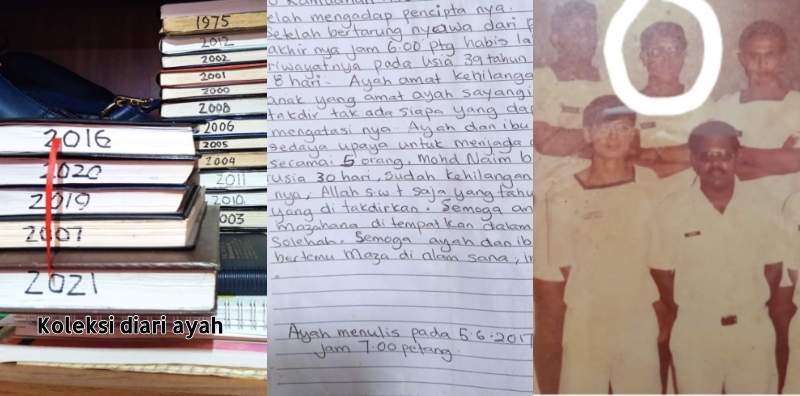 1975
2012
2002
2001
2000
2008
2006
2005
2004
2011
2010
003
2016
2020
2019
2007
2021
Koleksi diari ayah
elah mengadap pencipta nya.
setelah bertarung nyawa dari
akhir nya jam 6:00 ptg habis la
riwayatnya pada usia 39 tahun
8 hari. Ayah amat kehilanga
anak yang amat ayah sayangi
takdir tak ada siapa yang da
mengatasi nya. Ayah dan ibu
sedaya upaya untuk menjada
secamai 5 orang, Mohd Naim b
usia 30 hari, sudah kehilangan
nya, Allah s.w.t saja yang tahu
yang di takdirkan. Semoga an
mazahana di tempatkan dalam
Solehah. Semoga ayah dan ib
bertemu Maza di alam sana, in
Ayah menulis pada 5.6.2017
jam 7.00 petang.